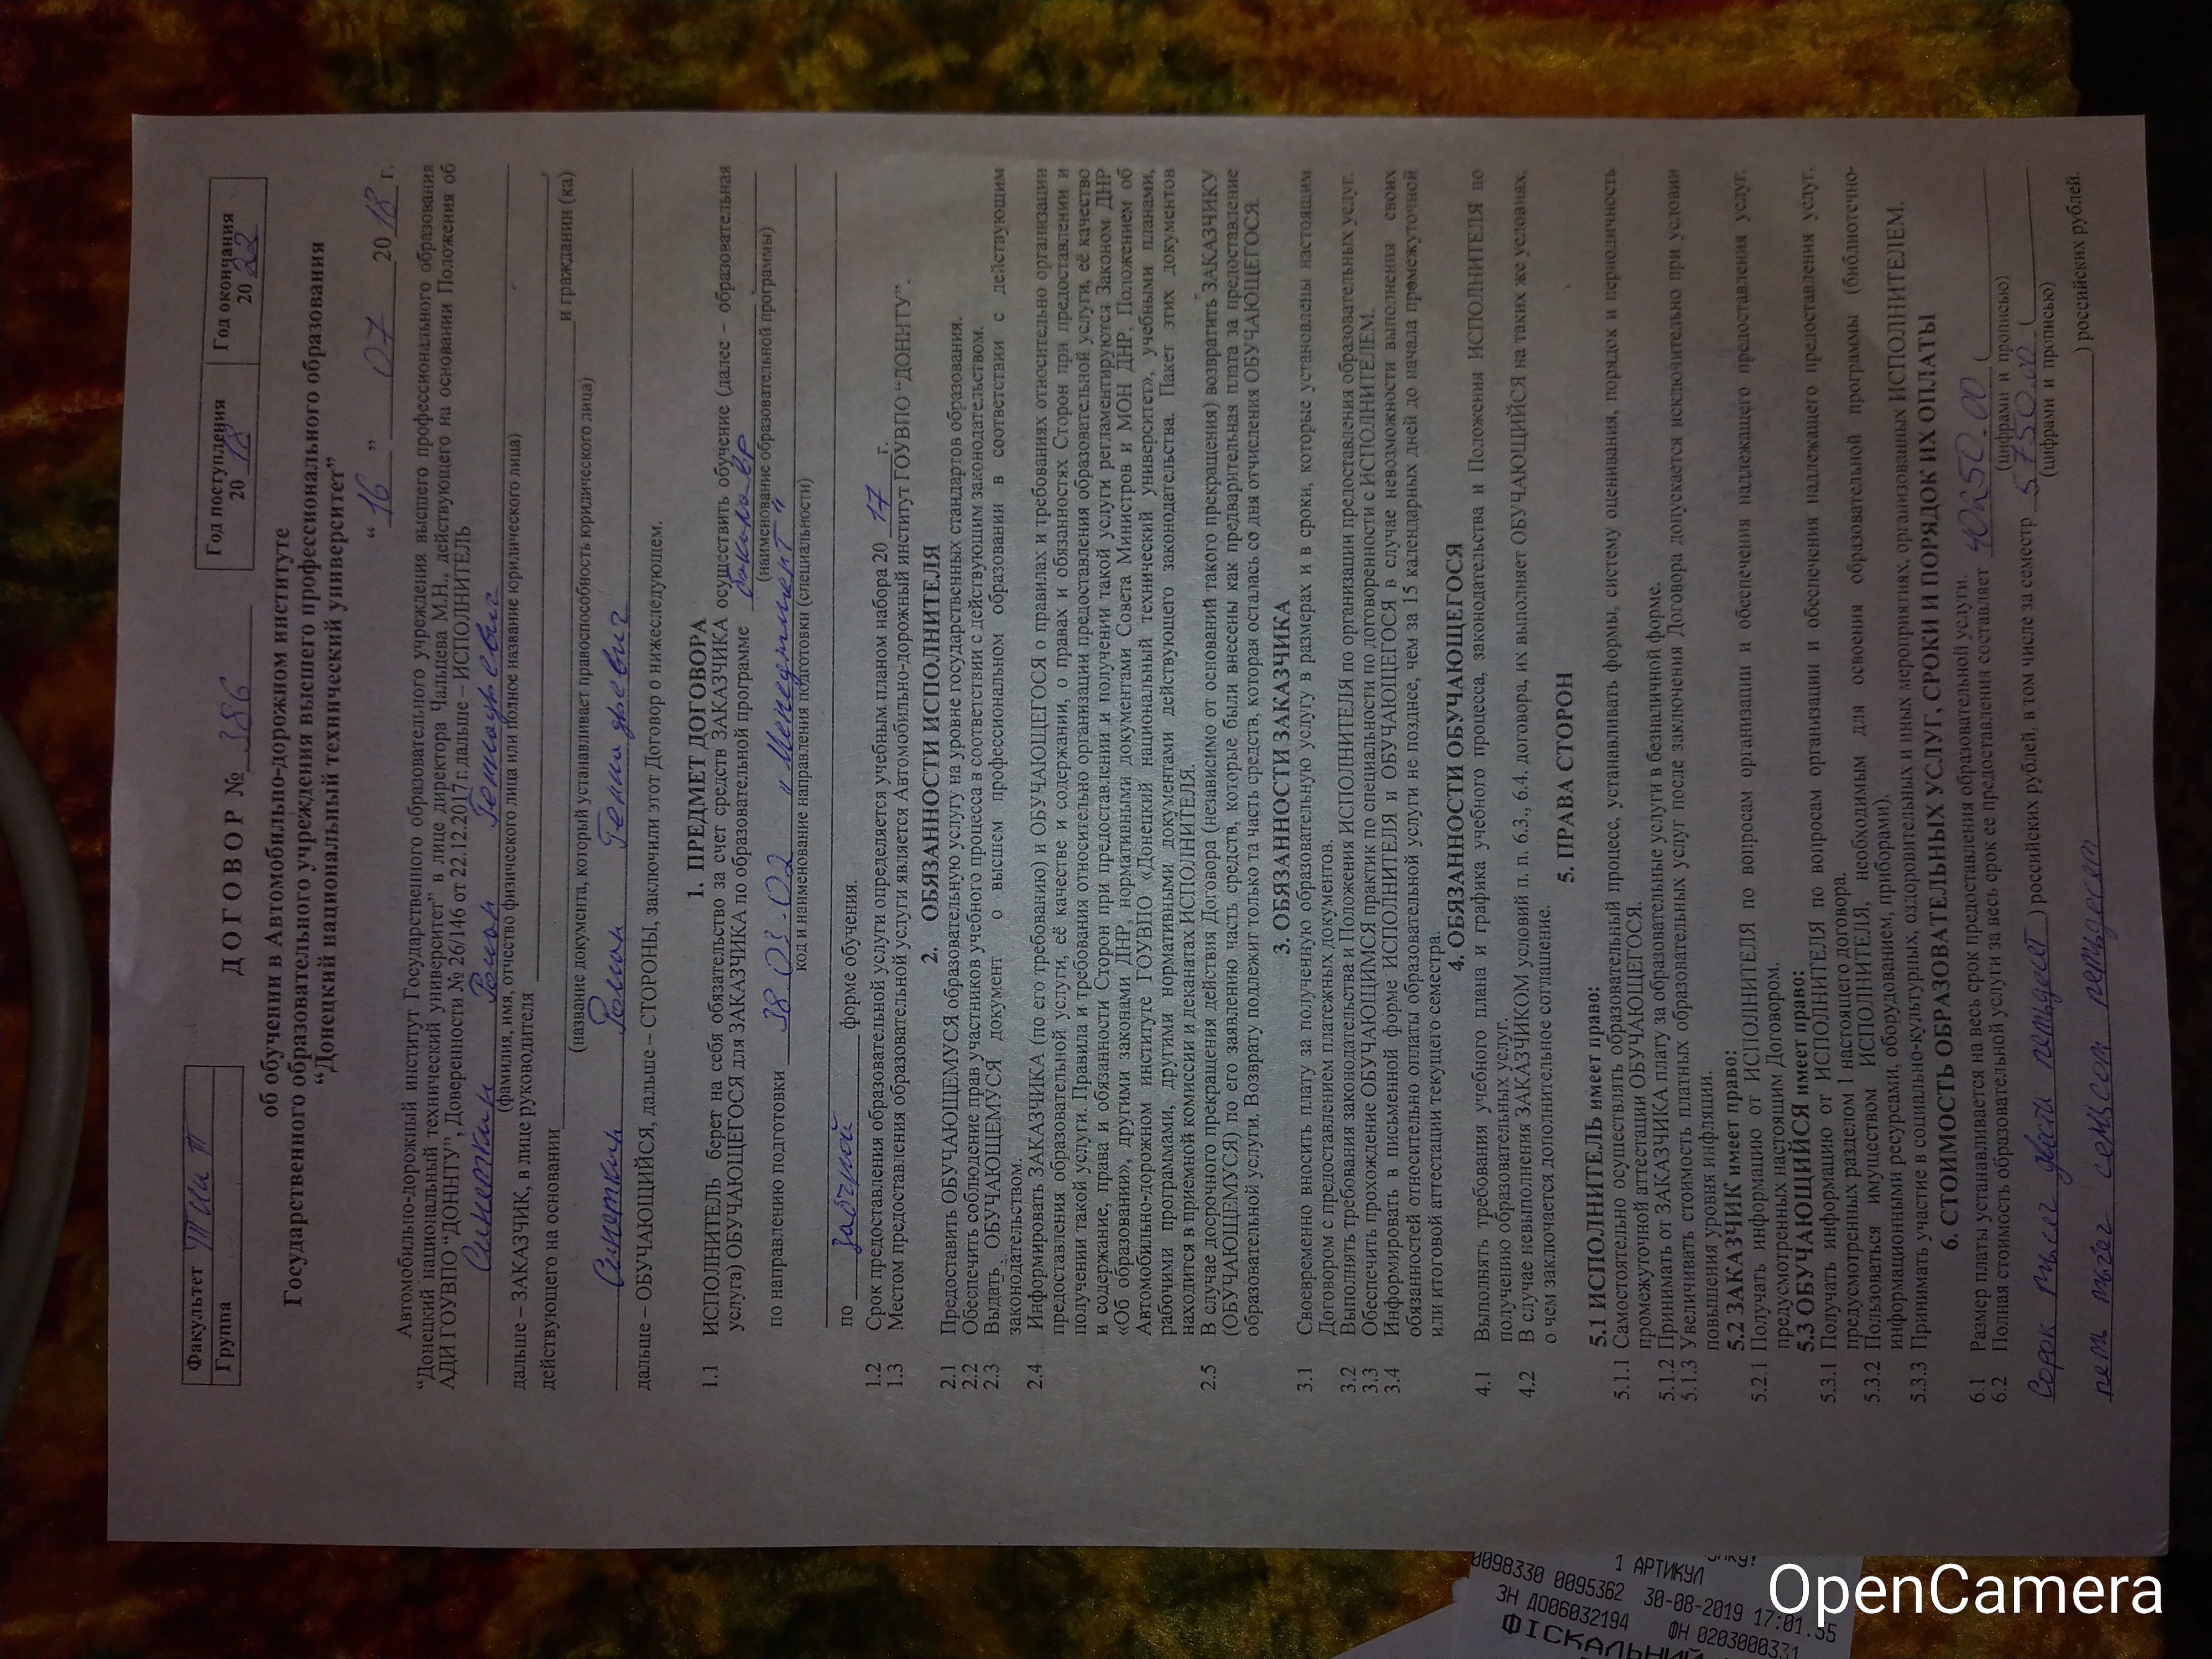 Факультет ТИиТ
Группа
ДОГОВОР № 386
Год поступления
2018
Год окончания
2022
об обучении в Автомобильно-дорожном институте
Государственного образовательного учреждения высшего профессионального образования
“Донецкий национальный технический университет”
“ 16 ” 07 2018 г.
Автомобильно-дорожный институт Государственного образовательного учреждения высшего профессионального образования
“Донецкий национальный технический университет” в лице директора Чальцева М.Н., действующего на основании Положения об
АДИ ГОУВПО “ДОННТУ”, Доверенности № 26/146 от 22.12.2017 г. дальше – ИСПОЛНИТЕЛЬ
Роман
(фамилия, имя, отчество физического лица или полное название юридического лица)
дальше – ЗАКАЗЧИК, в лице руководителя
действующего на основании и гражданин (ка)
(название документа, который устанавливает правоспособность юридического лица)
Роман
дальше – ОБУЧАЮЩИЙСЯ, дальше – СТОРОНЫ, заключили этот Договор о нижеследующем.
1. ПРЕДМЕТ ДОГОВОРА
1.1 ИСПОЛНИТЕЛЬ берет на себя обязательство за счет средств ЗАКАЗЧИКА осуществить обучение (далее – образовательная
услуга) ОБУЧАЮЩЕГОСЯ для ЗАКАЗЧИКА по образовательной программе бакалавр
(наименование образовательной программы)
по направлению подготовки 38.03.02 „Менеджмент“
код и наименование направления подготовки (специальности)
по заочной форме обучения.
1.2 Срок предоставления образовательной услуги определяется учебным планом набора 20 17 г.
1.3 Местом предоставления образовательной услуги является Автомобильно-дорожный институт ГОУВПО “ДОННТУ”.
2. ОБЯЗАННОСТИ ИСПОЛНИТЕЛЯ
2.1 Предоставить ОБУЧАЮЩЕМУСЯ образовательную услугу на уровне государственных стандартов образования.
2.2 Обеспечить соблюдение прав участников учебного процесса в соответствии с действующим законодательством.
2.3 Выдать ОБУЧАЮЩЕМУСЯ документ о высшем профессиональном образовании в соответствии с действующим
законодательством.
2.4 Информировать ЗАКАЗЧИКА (по его требованию) и ОБУЧАЮЩЕГОСЯ о правилах и требованиях относительно организации
предоставления образовательной услуги, её качестве и содержании, о правах и обязанностях Сторон при предоставлении и
получении такой услуги. Правила и требования относительно организации предоставления образовательной услуги, её качество
и содержание, права и обязанности Сторон при предоставлении и получении такой услуги регламентируются Законом ДНР
«Об образовании», другими законами ДНР, нормативными документами Совета Министров и МОН ДНР, Положением об
Автомобильно-дорожном институте ГОУВПО «Донецкий национальный технический университет», учебными планами,
рабочими программами, другими нормативными документами действующего законодательства. Пакет этих документов
находится в приемной комиссии и деканатах ИСПОЛНИТЕЛЯ.
2.5 В случае досрочного прекращения действия Договора (независимо от оснований такого прекращения) возвратить ЗАКАЗЧИКУ
(ОБУЧАЮЩЕМУСЯ) по его заявлению часть средств, которые были внесены как предварительная плата за предоставление
образовательной услуги. Возврату подлежит только та часть средств, которая осталась со дня отчисления ОБУЧАЮЩЕГОСЯ.
3. ОБЯЗАННОСТИ ЗАКАЗЧИКА
3.1 Своевременно вносить плату за полученную образовательную услугу в размерах и в сроки, которые установлены настоящим
Договором с предоставлением платежных документов.
3.2 Выполнять требования законодательства и Положения ИСПОЛНИТЕЛЯ по организации предоставления образовательных услуг.
3.3 Обеспечить прохождение ОБУЧАЮЩИМСЯ практик по специальности по договоренности с ИСПОЛНИТЕЛЕМ.
3.4 Информировать в письменной форме ИСПОЛНИТЕЛЯ и ОБУЧАЮЩЕГОСЯ в случае невозможности выполнения своих
обязанностей относительно оплаты образовательной услуги не позднее, чем за 15 календарных дней до начала промежуточной
или итоговой аттестации текущего семестра.
4. ОБЯЗАННОСТИ ОБУЧАЮЩЕГОСЯ
4.1 Выполнять требования учебного плана и графика учебного процесса, законодательства и Положения ИСПОЛНИТЕЛЯ по
получению образовательных услуг.
4.2 В случае невыполнения ЗАКАЗЧИКОМ условий п. п. 6.3., 6.4. договора, их выполняет ОБУЧАЮЩИЙСЯ на таких же условиях,
о чем заключается дополнительное соглашение.
5. ПРАВА СТОРОН
5.1 ИСПОЛНИТЕЛЬ имеет право:
5.1.1 Самостоятельно осуществлять образовательный процесс, устанавливать формы, систему оценивания, порядок и периодичность
промежуточной аттестации ОБУЧАЮЩЕГОСЯ.
5.1.2 Принимать от ЗАКАЗЧИКА плату за образовательные услуги в безналичной форме.
5.1.3 Увеличивать стоимость платных образовательных услуг после заключения Договора допускается исключительно при условии
повышения уровня инфляции.
5.2 ЗАКАЗЧИК имеет право:
5.2.1 Получать информацию от ИСПОЛНИТЕЛЯ по вопросам организации и обеспечения надлежащего предоставления услуг,
предусмотренных настоящим Договором.
5.3 ОБУЧАЮЩИЙСЯ имеет право:
5.3.1 Получать информацию от ИСПОЛНИТЕЛЯ по вопросам организации и обеспечения надлежащего предоставления услуг,
предусмотренных разделом 1 настоящего договора.
5.3.2 Пользоваться имуществом ИСПОЛНИТЕЛЯ, необходимым для освоения образовательной программы (библиотечно-
информационными ресурсами, оборудованием, приборами).
5.3.3 Принимать участие в социально-культурных, оздоровительных и иных мероприятиях, организованных ИСПОЛНИТЕЛЕМ.
6. СТОИМОСТЬ ОБРАЗОВАТЕЛЬНЫХ УСЛУГ, СРОКИ И ПОРЯДОК ИХ ОПЛАТЫ
6.1 Размер платы устанавливается на весь срок предоставления образовательной услуги.
6.2 Полная стоимость образовательной услуги за весь срок ее предоставления составляет 40250.00 (
(цифрами и прописью)
Сорок тысяч двести пятьдесят ) российских рублей, в том числе за семестр 5750.00 (
(цифрами и прописью)
пять тысяч семьсот пятьдесят ) российских рублей.
1 АРТИКУЛ
0098330 0095362 30-08-2019 17:01:35
ЗН ДО06032194 ФН 0203000331
ФІСКАЛЬНИЙ
OpenCamera